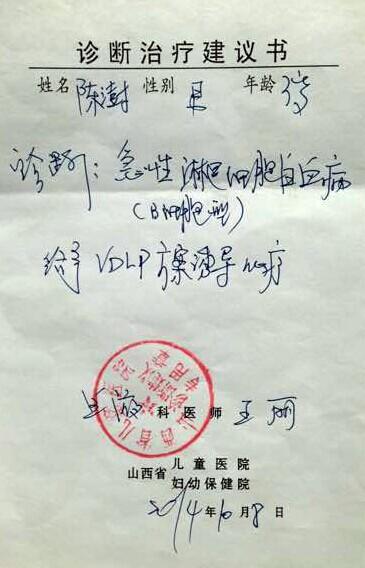 诊断治疗建议书
姓名 陈澍 性别 男 年龄 3岁
诊断：急性淋巴细胞白血病
（B细胞型）
给予 VDLP方案诱导化疗
血液科医师 王丽
山西省儿童医院
妇幼保健院
2014年10月8日